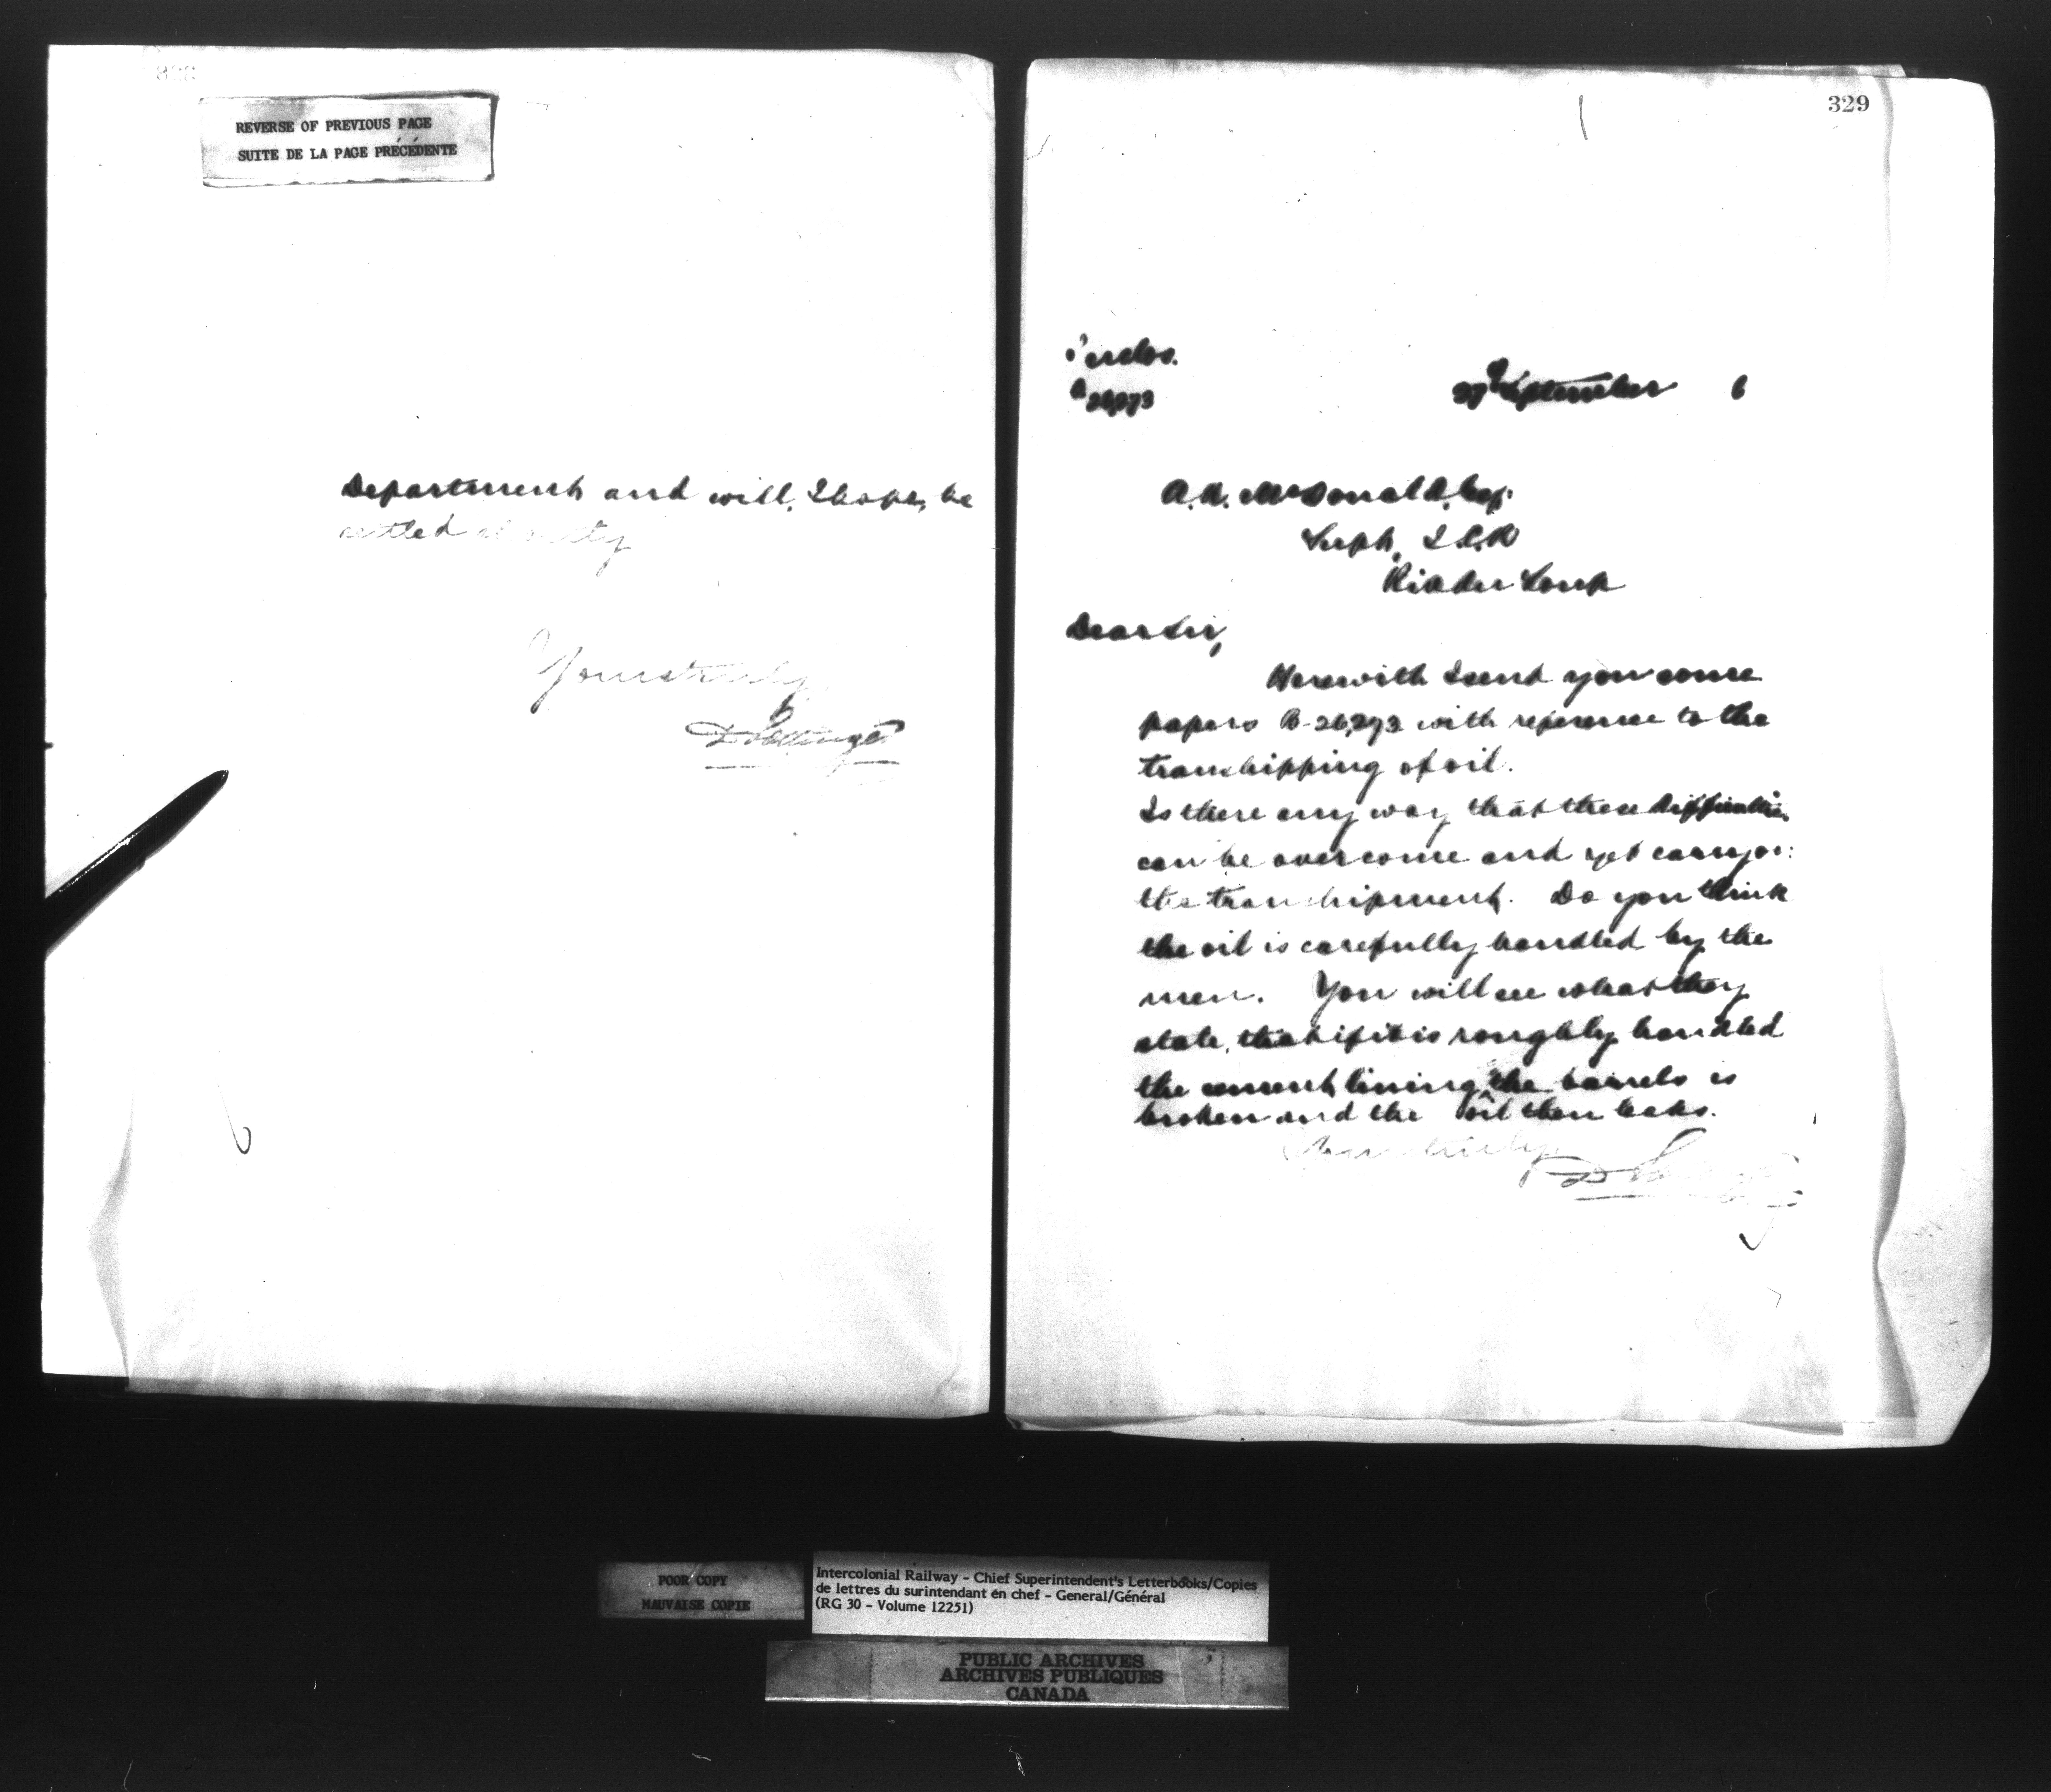 328
REVERSE OF PREVIOUS PAGE
SUITE DE LA PAGE PRÉCÉDENTE
Department and will, I hope, be
settled
Yours truly
D Pottinger
329
enclos.
27 September 6
A. R. McDonald, Esq.
Supt. I.C.R
Riv du Loup
Dear Sir,
Herewith I send you some
papers B-26,273 with reference to the
transhipping of oil.
Is there any way that these difficulties
can be overcome and yet carry on
the transhipment. Do you think
the oil is carefully handled by the
men. You will see what they
state, that if it is roughly handled
the cement lining the barrels is
broken and the oil then leaks.
Yours truly
D Pottinger
POOR COPY
MAUVAISE COPIE
Intercolonial Railway - Chief Superintendent's Letterbooks/Copies
de lettres du surintendant en chef - General/Général
(RG 30 - Volume 12251)
PUBLIC ARCHIVES
ARCHIVES PUBLIQUES
CANADA